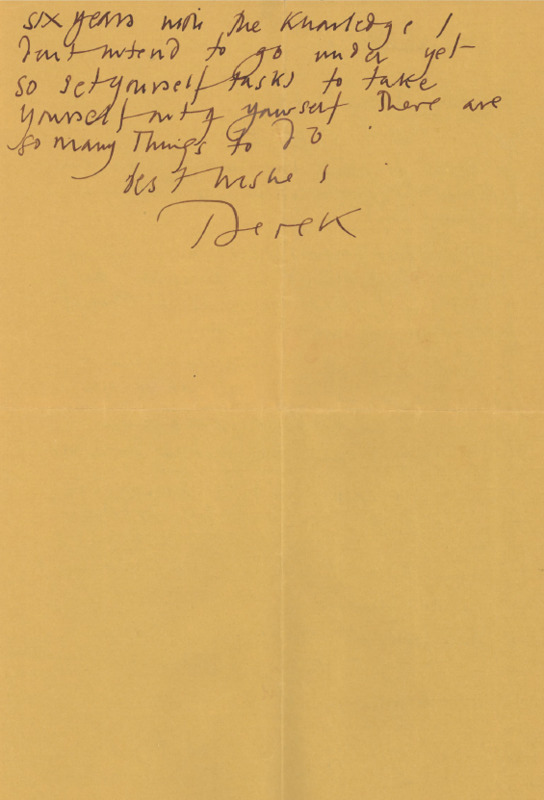 six years with the knowledge I
don't intend to go under yet
so set yourself tasks to take
yourself out of yourself There are
so many Things to do
best wishes
Derek